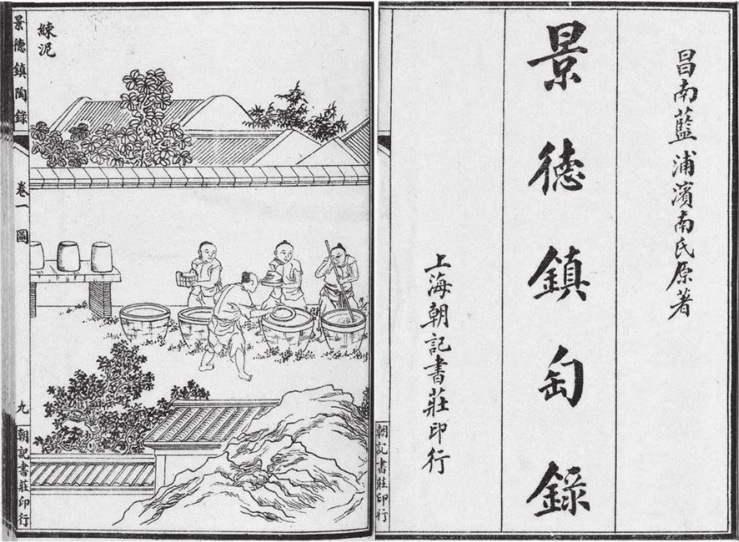 昌南藍浦濱南氏原著
景德鎮匋錄
上海朝記書莊印行
朝記書莊印行
鍊泥
景德鎮陶錄
卷一
圖
九
朝記書莊印行